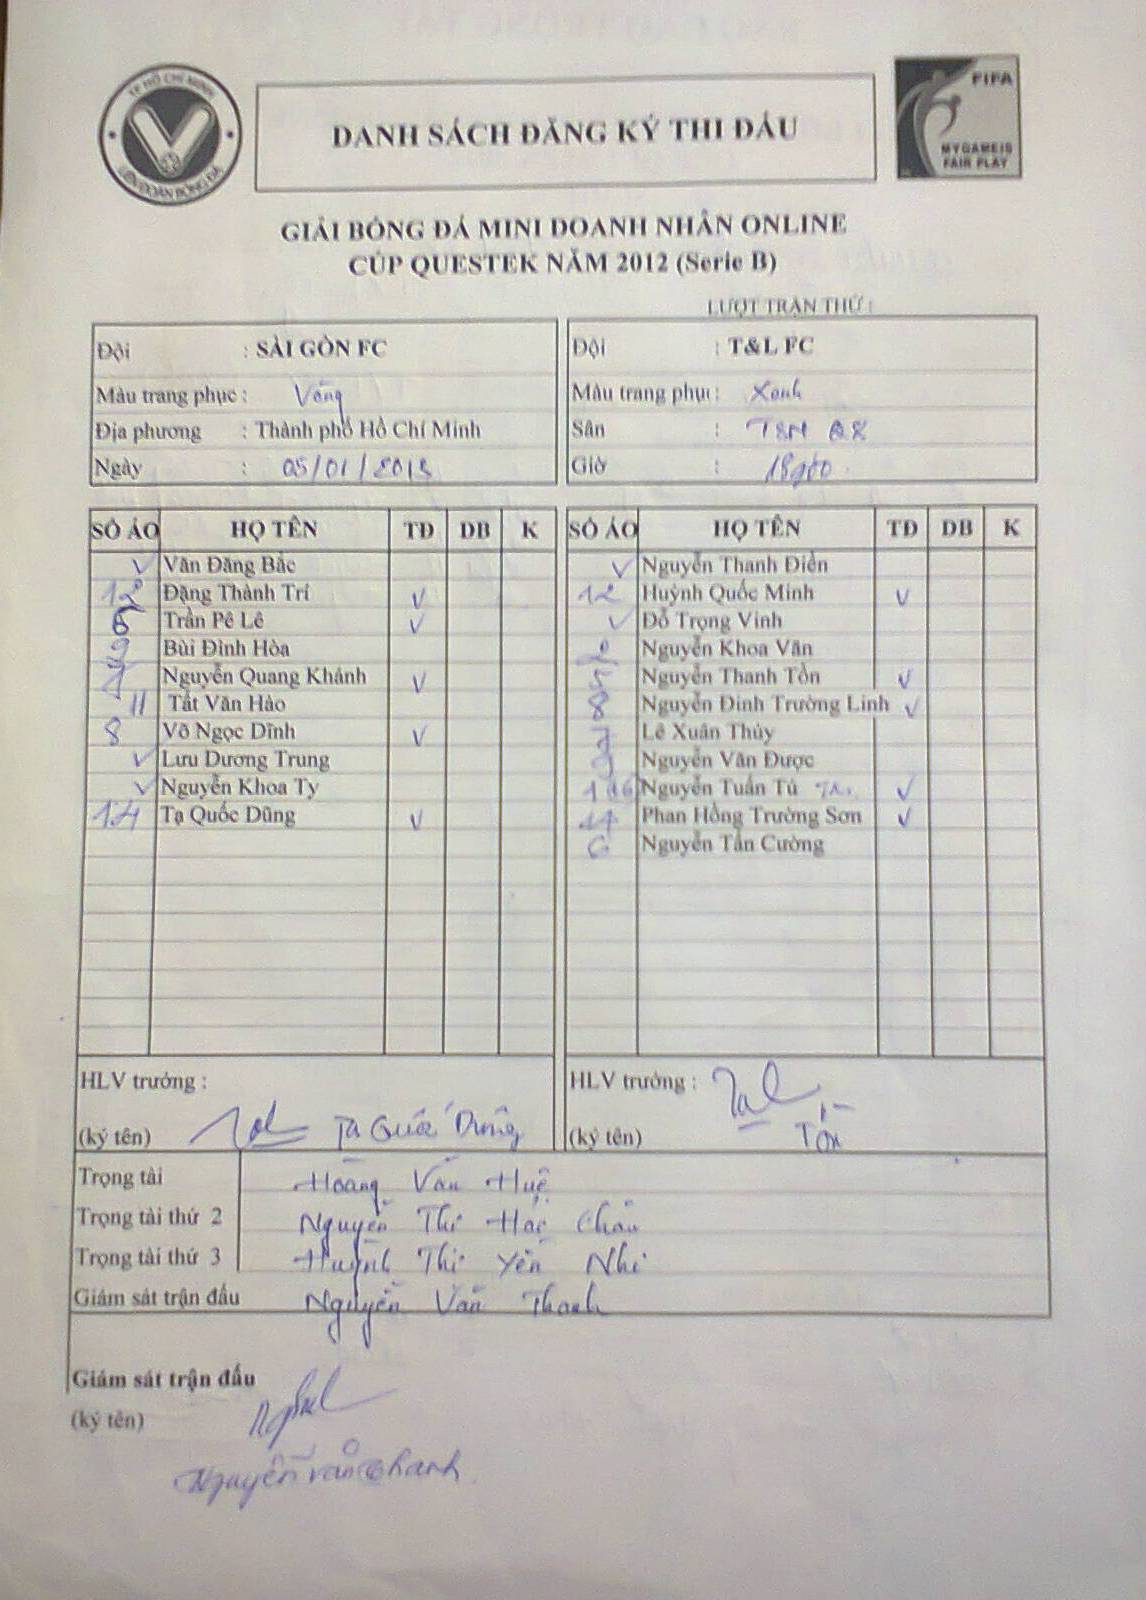 TP HỒ CHÍ MINH
LIÊN ĐOÀN BÓNG ĐÁ
DANH SÁCH ĐĂNG KÝ THI ĐẤU
FIFA
MY GAME IS
FAIR PLAY
GIẢI BÓNG ĐÁ MINI DOANH NHÂN ONLINE
CÚP QUESTEK NĂM 2012 (Serie B)
LƯỢT TRẬN THỨ :
Đội : SÀI GÒN FC
Màu trang phục : Vàng
Địa phương : Thành phố Hồ Chí Minh
Ngày : 05/01/2013
Đội : T&L FC
Màu trang phục : Xanh
Sân :
Giờ : 18g00
SỐ ÁO HỌ TÊN TĐ DB K
✓ Văn Đăng Bắc
12 Đặng Thành Trí ✓
6 Trần Pê Lê ✓
9 Bùi Đình Hòa
Nguyễn Quang Khánh ✓
11 Tất Văn Hảo
8 Võ Ngọc Dĩnh ✓
✓ Lưu Dương Trung
✓ Nguyễn Khoa Ty
14 Tạ Quốc Dũng ✓
SỐ ÁO HỌ TÊN TĐ DB K
✓ Nguyễn Thanh Điền
12 Huỳnh Quốc Minh ✓
✓ Đỗ Trọng Vinh
Nguyễn Khoa Văn
Nguyễn Thanh Tồn ✓
8 Nguyễn Đinh Trường Linh ✓
Lê Xuân Thủy
Nguyễn Văn Được
Nguyễn Tuấn Tú ✓
Phan Hồng Trường Sơn ✓
6 Nguyễn Tấn Cường
HLV trưởng :
(ký tên) Tạ Quốc Dũng
HLV trưởng :
(ký tên) Tồn
Trọng tài Hoàng Văn Huệ
Trọng tài thứ 2 Nguyễn Thị Châu
Trọng tài thứ 3 Huỳnh Thị Yến Nhi
Giám sát trận đấu Nguyễn Văn Thanh
Giám sát trận đấu
(ký tên)
Nguyễn Văn Thanh